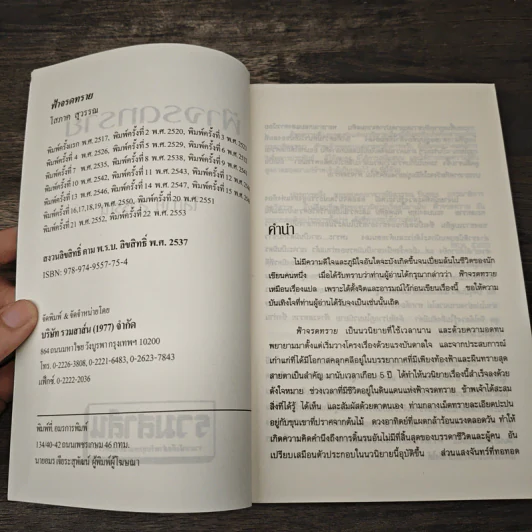 ฟ้าจรดทราย
โสภาค สุวรรณ
พิมพ์ครั้งแรก พ.ศ. 2517, พิมพ์ครั้งที่ 2 พ.ศ. 2520, พิมพ์ครั้งที่ 3 พ.ศ.
พิมพ์ครั้งที่ 4 พ.ศ. 2526, พิมพ์ครั้งที่ 5 พ.ศ. 2529, พิมพ์ครั้งที่ 6 พ.ศ.
พิมพ์ครั้งที่ 7 พ.ศ. 2535, พิมพ์ครั้งที่ 8 พ.ศ. 2538, พิมพ์ครั้งที่ 9 พ.ศ.
พิมพ์ครั้งที่ 10 พ.ศ. 2542, พิมพ์ครั้งที่ 11 พ.ศ. 2543, พิมพ์ครั้งที่ 12 พ.ศ.
พิมพ์ครั้งที่ 13 พ.ศ. 2546, พิมพ์ครั้งที่ 14 พ.ศ. 2547, พิมพ์ครั้งที่ 15 พ.ศ.
พิมพ์ครั้งที่ 16,17,18,19, พ.ศ. 2550, พิมพ์ครั้งที่ 20 พ.ศ. 2551
พิมพ์ครั้งที่ 21 พ.ศ. 2552, พิมพ์ครั้งที่ 22 พ.ศ. 2553
สงวนลิขสิทธิ์ ตาม พ.ร.บ. ลิขสิทธิ์ พ.ศ. 2537
ISBN: 978-974-9557-75-4
จัดพิมพ์ & จัดจำหน่ายโดย
บริษัท รวมสาส์น (1977) จำกัด
864 ถนนมหาไชย วังบูรพา กรุงเทพฯ 10200
โทร. 0-2226-3808, 0-2221-6483, 0-2623-7843
แฟ็กซ์. 0-2222-2036
พิมพ์ที่ อมรการพิมพ์
134/40-42 ถนนเพชรเกษม 46 กทม.
ผู้พิมพ์ผู้โฆษณา
คำนำ
ไม่มีความดีใจและภูมิใจอันใดจะบังเกิดขึ้นจนเปี่ยมล้นในชีวิตของนัก
เขียนคนหนึ่ง เมื่อได้รับทราบว่าท่านผู้อ่านได้กรุณากล่าวว่า ฟ้าจรดทราย
เหมือนเรื่องแปล เพราะได้ตั้งจิตและอารมณ์ไว้ก่อนเขียนเรื่องนี้ ขอให้ความ
บันเทิงใจที่ท่านผู้อ่านได้รับจงเป็นเช่นนั้นเถิด
ฟ้าจรดทราย เป็นนวนิยายที่ใช้เวลานาน และด้วยความอดทน
พยายามมาตั้งแต่เริ่มวางโครงเรื่องด้วยแรงบันดาลใจ และจากประสบการณ์
เก่าแก่ที่ได้มีโอกาสคลุกคลีอยู่ในบรรยากาศที่มีเพียงท้องฟ้าและผืนทรายสุด
สายตาเป็นสำคัญ มานับเวลาเกือบ 5 ปี ได้ทำให้นวนิยายเรื่องนี้สำเร็จลงด้วย
ดังใจหมาย ช่วงเวลาที่มีชีวิตอยู่ในดินแดนแห่งฟ้าจรดทราย ข้าพเจ้าได้สะสม
สิ่งที่ได้รู้ ได้เห็น และสัมผัสด้วยตาตนเอง ท่ามกลางเม็ดทรายละเอียดปะปน
อยู่กับขุนเขาที่ปราศจากต้นไม้ ดวงอาทิตย์ที่แผดกล้าร้อนแรงตลอดวัน ทำให้
เกิดความคิดคำนึงถึงการดิ้นรนอันไม่มีที่สิ้นสุดของบรรดาชีวิตและผู้คน อัน
เปรียบเสมือนตัวประกอบในนวนิยายนี้อุบัติขึ้น ส่วนแสงจันทร์ที่ทอทอด